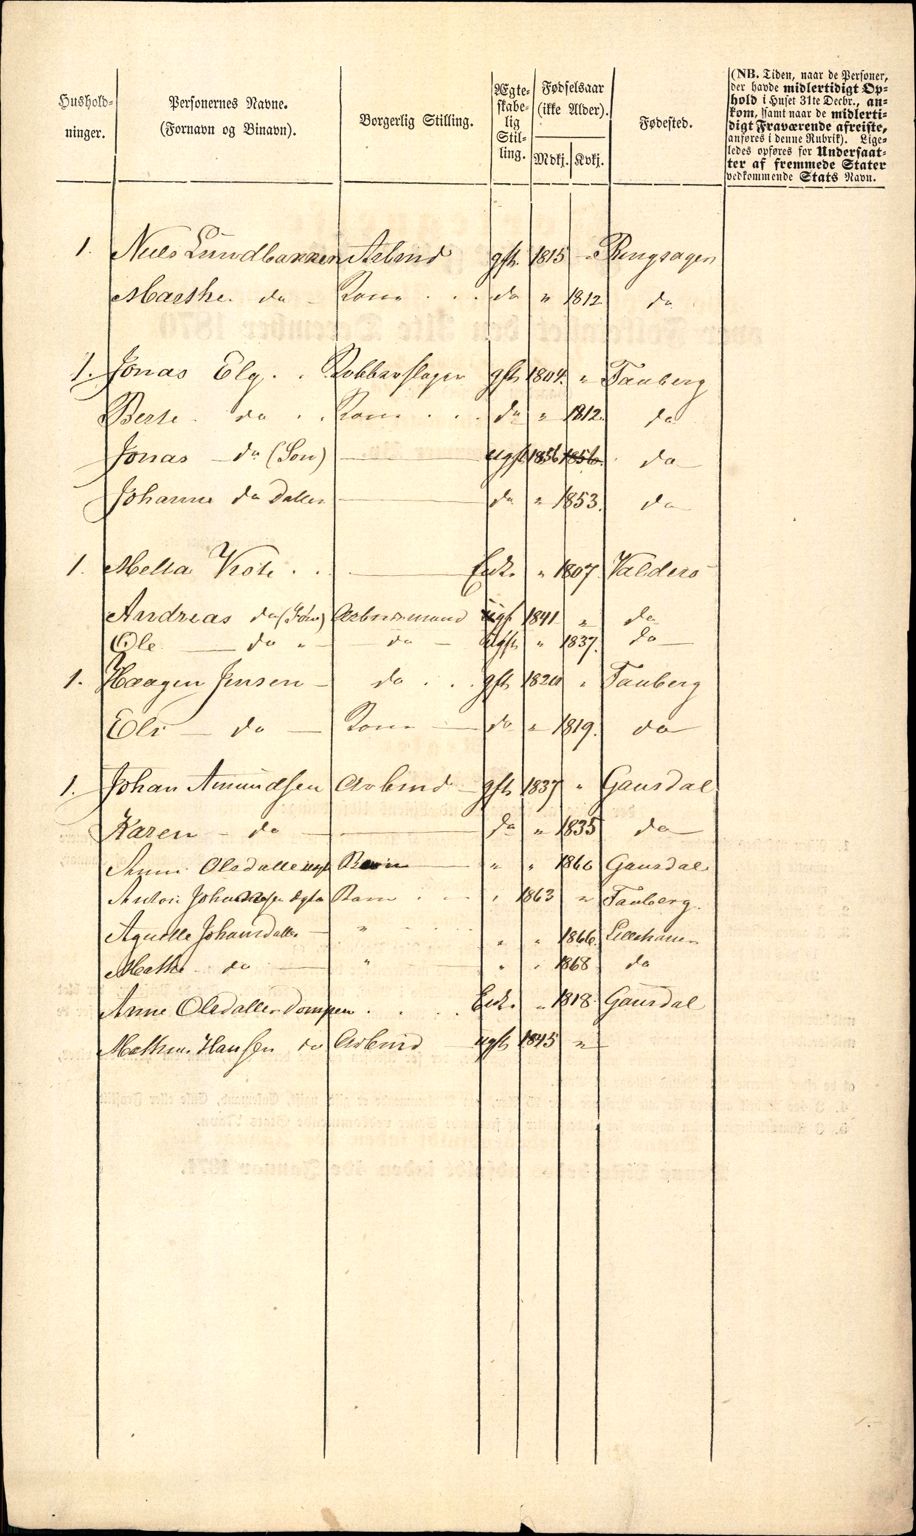 Hushold-
ninger.
Personernes Navne.
(Fornavn og Binavn).
Borgerlig Stilling.
Ægte-
skabe-
lig
Stil-
ling.
Fødselsaar
(ikke Alder).
Mdkj. Kvkj.
Fødested.
(NB. Tiden, naar de Personer,
der havde midlertidigt Op-
hold i Huset 31te Decbr., an-
kom, samt naar de midlerti-
digt Fraværende afreiste,
anføres i denne Rubrik). Lige-
ledes opføres for Undersaat-
ter af fremmede Stater
vedkommende Stats Navn.
1. Niels Lundbakken Arbmd gft 1815 " Ringsager
Marthe do Kone do " 1812 do
1. Jonas Elg Kobberslager gft 1804. " Faaberg
Berte do Kone do " 1812. do
Jonas do (Søn) ugft 1856 1856. do
Johanne do Datter do " 1853. do
1. Mette Enk. " 1807. Valders
Andreas do (Søn) Arbeidsmand ugft 1841 " do
Ole do do ugft " 1837. do
1. Haagen Jensen do gft 1820 " Faaberg
Eli do Kone do " 1819. do
1. Johan Amundsen Arbmd gft 1837 " Gausdal
Karen do do " 1835 do
Anne Olsdatter Barn " " 1860 Gausdal
Anton Barn " 1863 " Faaberg.
Agnethe Johansdatter " " " 1866. Lillehamer
Mathe do " " " 1868 do
Anne Olsdatter Dompen Enk. " 1818. Gausdal
Hansen do Arbmd ugft 1845 "